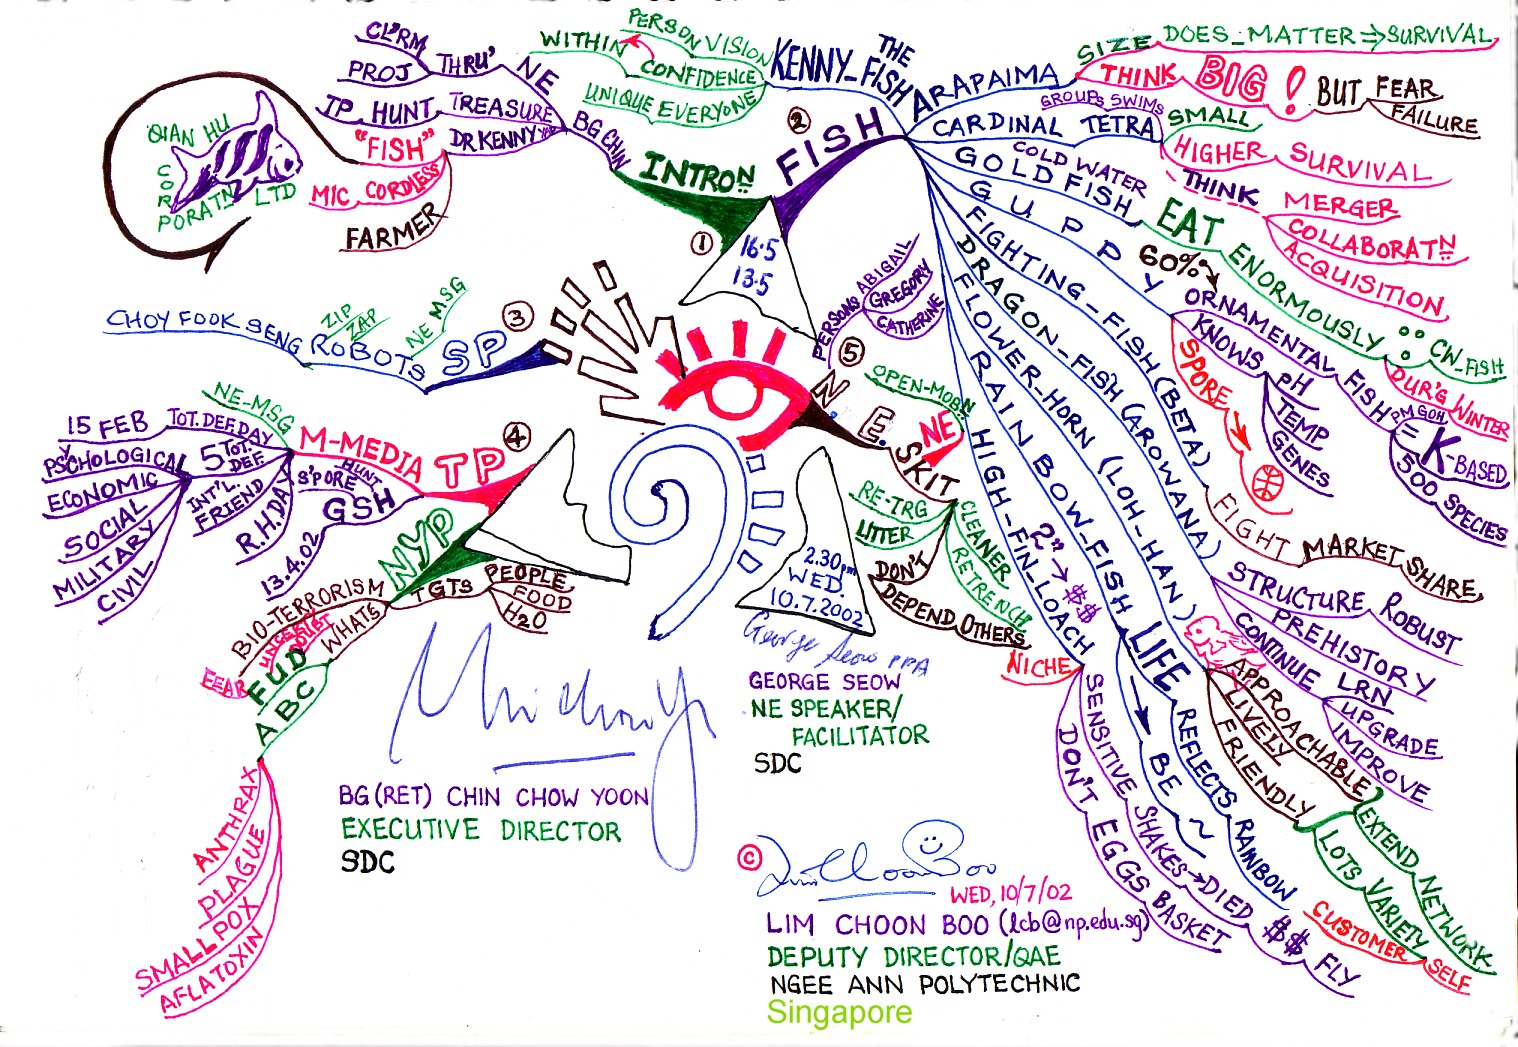 ①
INTROᴺ
BG CHIN
NE
THRU'
CL'RM
PROJ
TREASURE
TP HUNT
DR KENNY
"FISH"
MIC CORDLESS
FARMER
QIAN HU
CORPORATᴺ LTD
16.5
13.5
②
FISH
KENNY_THE FISH
PERSON VISION
WITHIN
CONFIDENCE
UNIQUE EVERYONE
ARAPAIMA
SIZE DOES_MATTER ⇒ SURVIVAL
THINK BIG!
BUT FEAR
FAILURE
GROUPS SWIMS
CARDINAL TETRA
SMALL
HIGHER SURVIVAL
THINK MERGER
COLLABORATᴺ
ACQUISITION
COLD WATER
GOLD FISH
EAT ENORMOUSLY
CW_FISH
DUR'G WINTER
GUPPY
60%
ORNAMENTAL FISH
PM GOH
= K-BASED
500 SPECIES
KNOWS pH
TEMP
GENES
SPORE
FIGHTING-FISH (BETA)
FIGHT MARKET SHARE
DRAGON-FISH (AROWANA)
STRUCTURE ROBUST
PREHISTORY
CONTINUE LRN
UPGRADE
IMPROVE
FLOWER-HORN (LOH-HAN)
APPROACHABLE
LIVELY
FRIENDLY
EXTEND NETWORK
LOTS VARIETY
CUSTOMER SELF
RAIN BOW-FISH
LIFE
REFLECTS RAINBOW
BE ~
HIGH-FIN-LOACH
2" → $$
NICHE
SENSITIVE SHAKES → DIED $$ FLY
DON'T EGGS BASKET
③
SP
ROBOTS
NE MSG
ZIP
ZAP
CHOY FOOK SENG
④
TP
M-MEDIA
NE-MSG
TOT. DEF. DAY
15 FEB
5 TOT. DEF.
PSYCHOLOGICAL
ECONOMIC
SOCIAL
MILITARY
CIVIL
INT'L FRIEND
R.H.DAY
S'PORE HUNT
GSH
13.4.02
NYP
TGTS
PEOPLE
FOOD
H2O
WHATS
BIO-TERRORISM
UNCERT.
DOUBT
FUD
FEAR
ABC
ANTHRAX
PLAGUE
SMALL POX
AFLATOXIN
⑤
N.E.
PERSONS
ABIGAIL
GREGORY
CATHERINE
SKIT
NE
OPEN-MOBᴺ
RE-TRG
LITTER
DON'T
DEPEND OTHERS
CLEANER
RETRENCH
2.30pm
WED.
10.7.2002
George Seow PPA
GEORGE SEOW
NE SPEAKER/
FACILITATOR
SDC
BG (RET) CHIN CHOW YOON
EXECUTIVE DIRECTOR
SDC
©
Lim Choon Boo
WED, 10/7/02
LIM CHOON BOO (lcb@np.edu.sg)
DEPUTY DIRECTOR/QAE
NGEE ANN POLYTECHNIC
Singapore